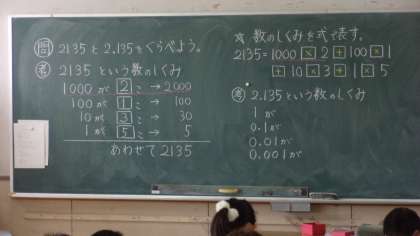 問 2135と2.135をくらべよう。
考 2135という数のしくみ
1000が 2 こ → 2000
100が 1 こ → 100
10が 3 こ → 30
1が 5 こ → 5
あわせて 2135
数のしくみを式で表す。
2135=1000×2+100×1
+10×3+1×5
考 2.135という数のしくみ
1が
0.1が
0.01が
0.001が